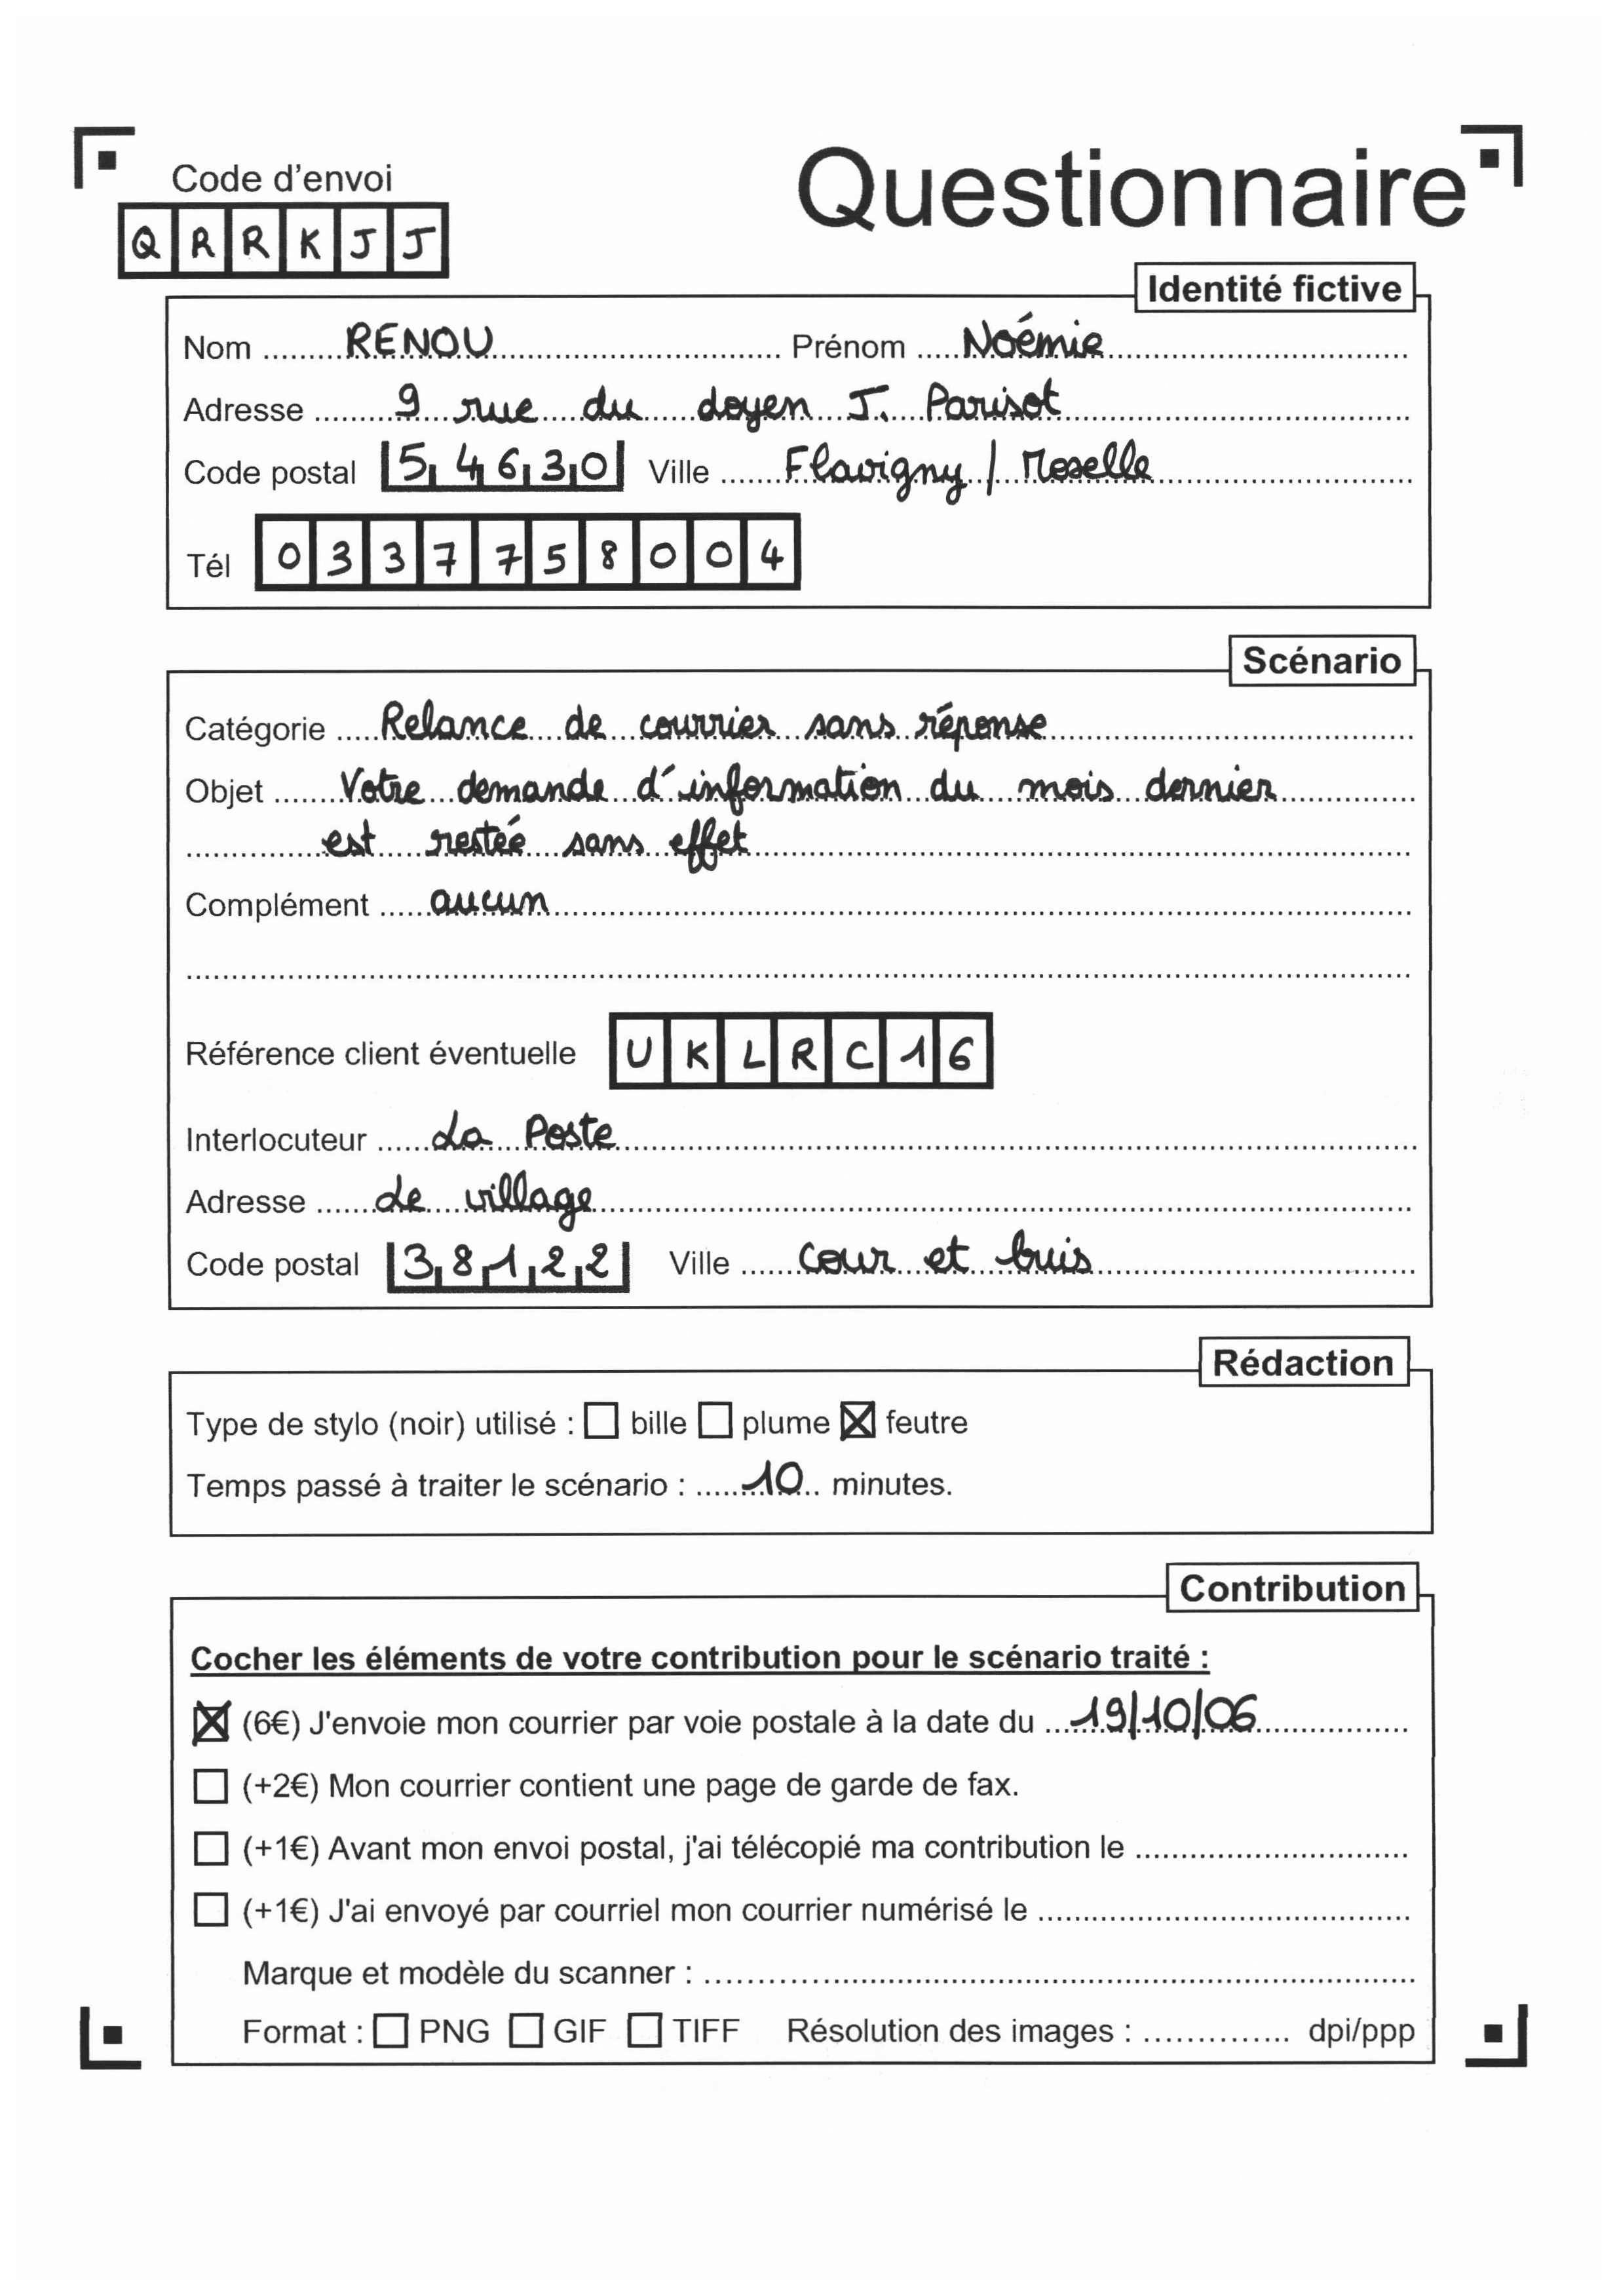 Code d'envoi
Questionnaire
QRRKJJ
Identité fictive
Nom RENOU Prénom Noémie
Adresse 9 rue du doyen J. Parisot
Code postal 54630 Ville Flavigny / Moselle
Tél 0337758004
Scénario
Catégorie Relance de courrier sans réponse
Objet Votre demande d'information du mois dernier
est restée sans effet
Complément aucun
Référence client éventuelle UKLRC16
Interlocuteur La Poste
Adresse Le village
Code postal 38122 Ville cour et buis
Rédaction
Type de stylo (noir) utilisé : ☐ bille ☐ plume ☒ feutre
Temps passé à traiter le scénario : 10 minutes.
Contribution
Cocher les éléments de votre contribution pour le scénario traité :
☒ (6€) J'envoie mon courrier par voie postale à la date du 19/10/06
☐ (+2€) Mon courrier contient une page de garde de fax.
☐ (+1€) Avant mon envoi postal, j'ai télécopié ma contribution le
☐ (+1€) J'ai envoyé par courriel mon courrier numérisé le
Marque et modèle du scanner :
Format : ☐ PNG ☐ GIF ☐ TIFF Résolution des images : dpi/ppp